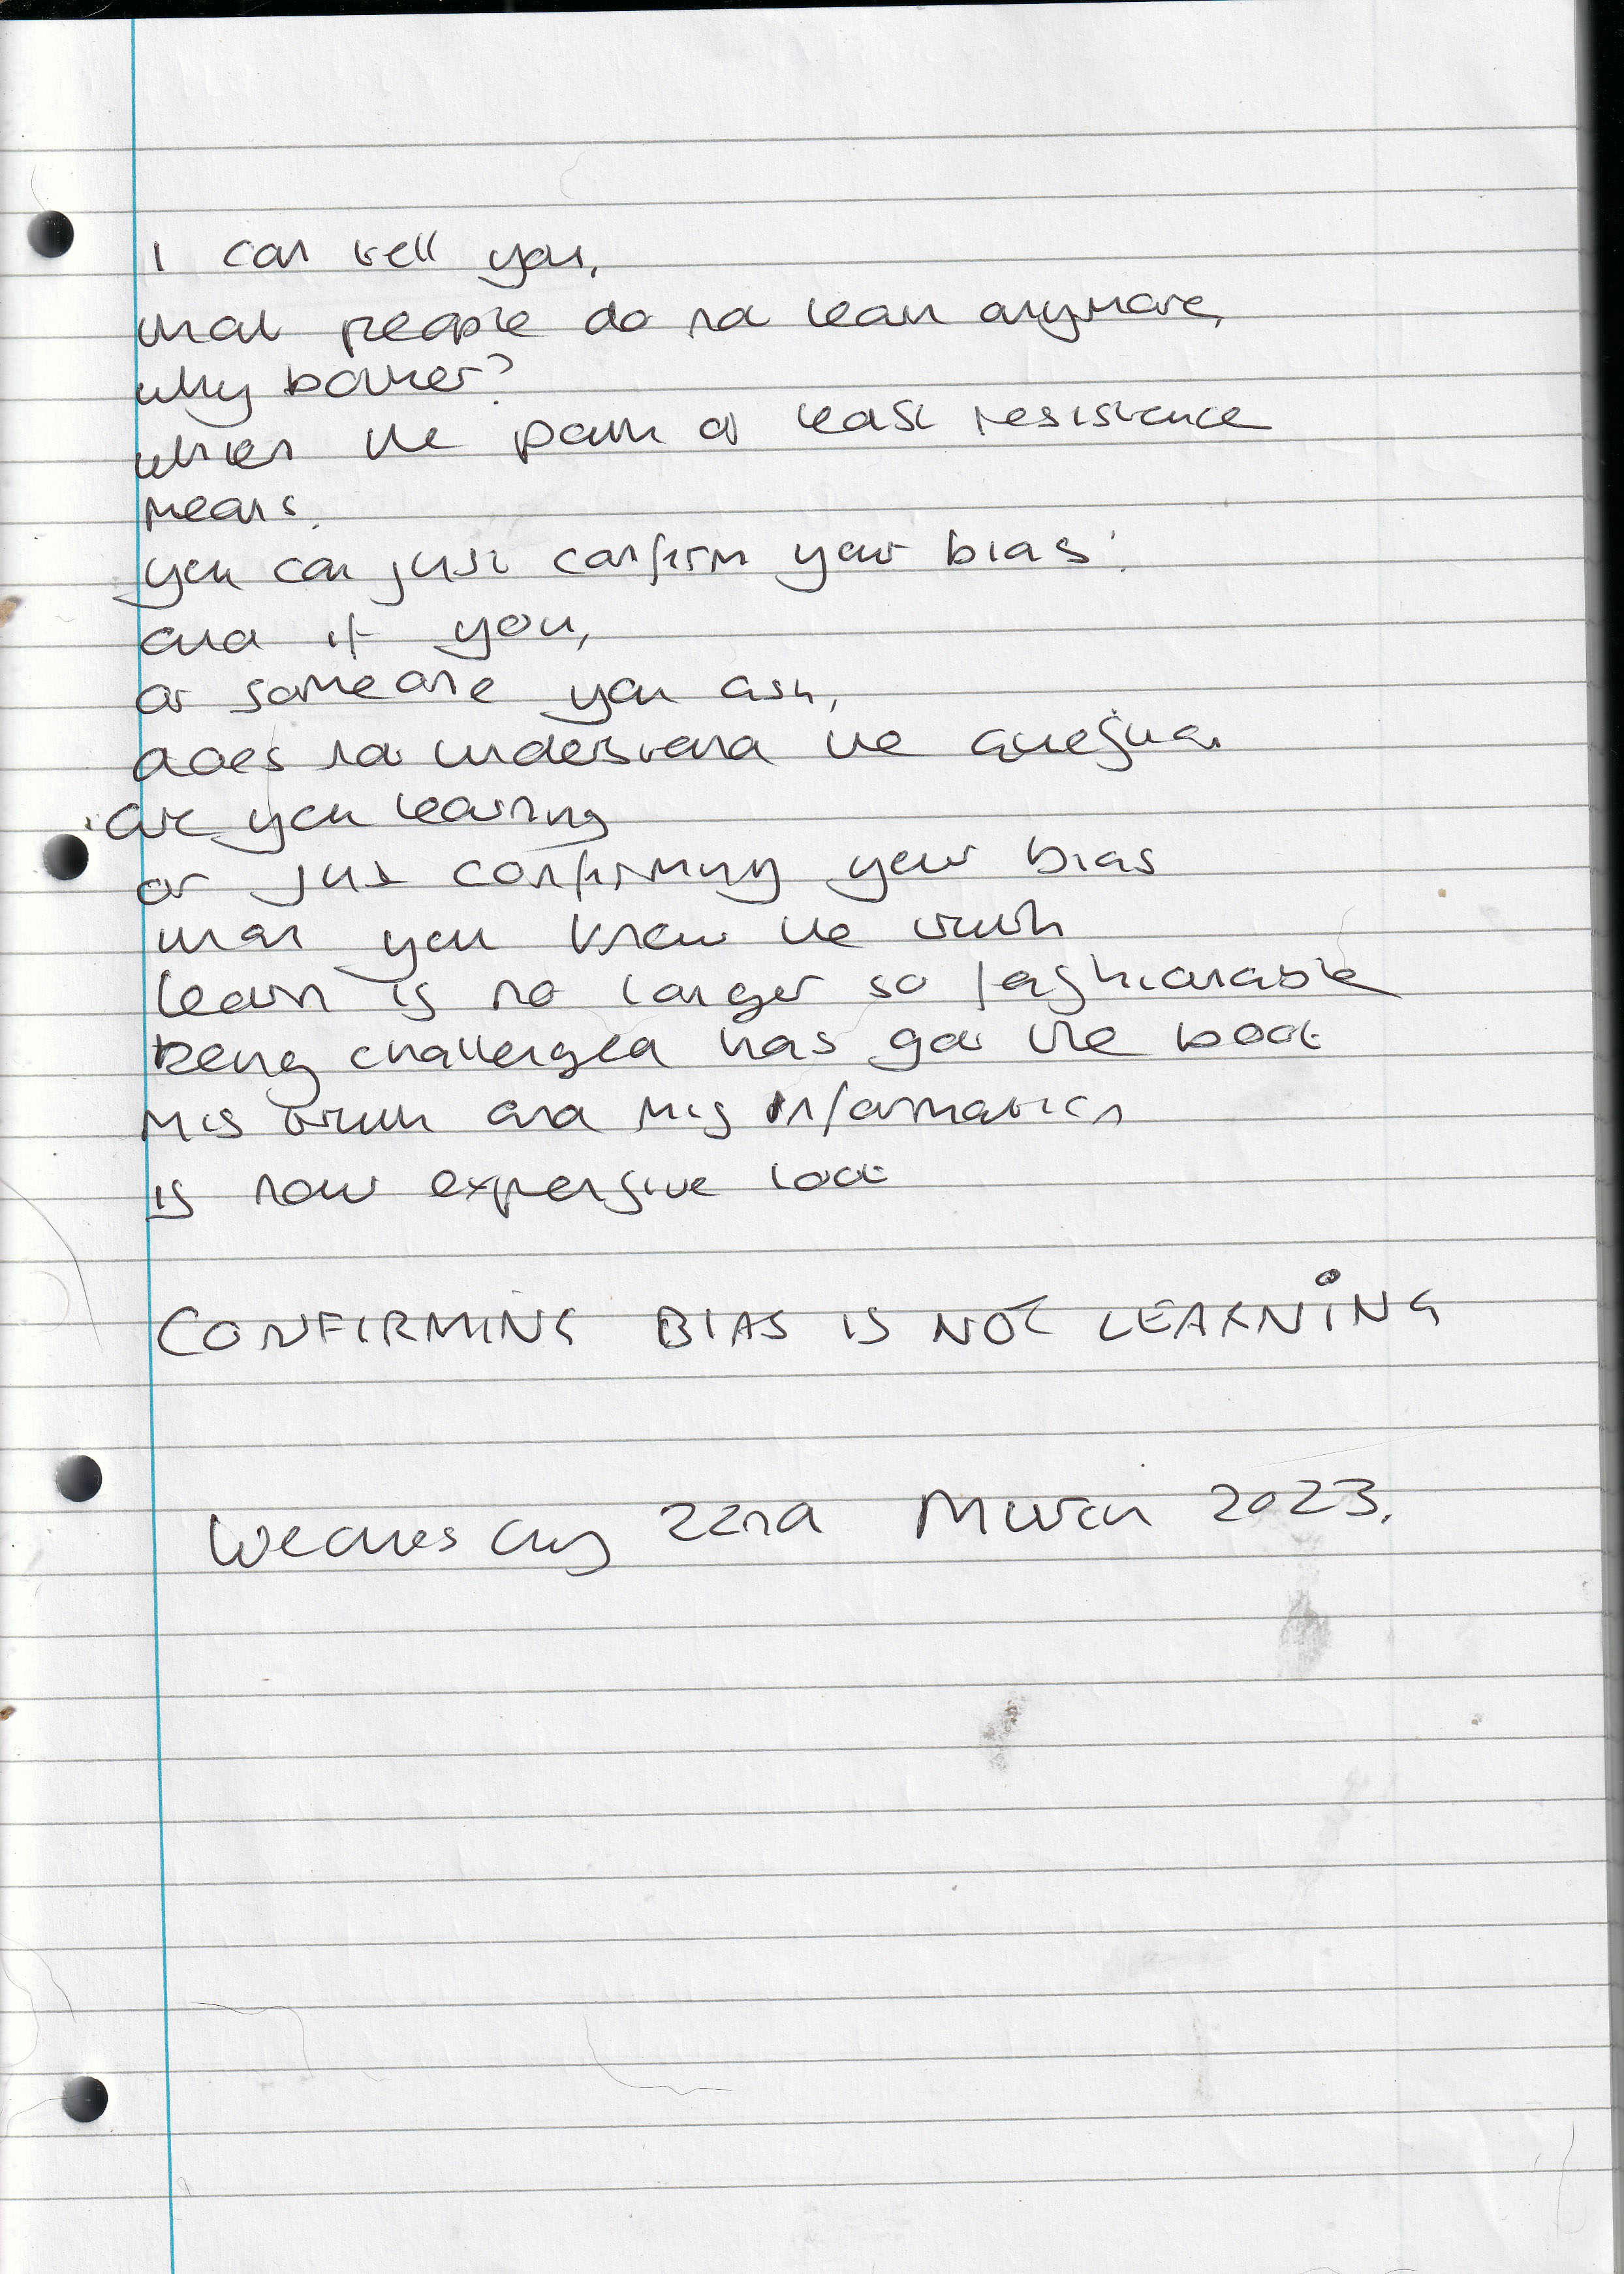 I can tell you,
that people do not learn anymore,
why bother?
when the path of least resistence
means.
you can just confirm your bias.
and if you,
or someone you ask,
does not understand the question
are you learning
or just confirming your bias
that you know the truth
learn is no longer so fashionable
being challenged has got the boot
mis truth and mis information
is now expensive loot
CONFIRMING BIAS IS NOT LEARNING
Wednesday 22nd March 2023.